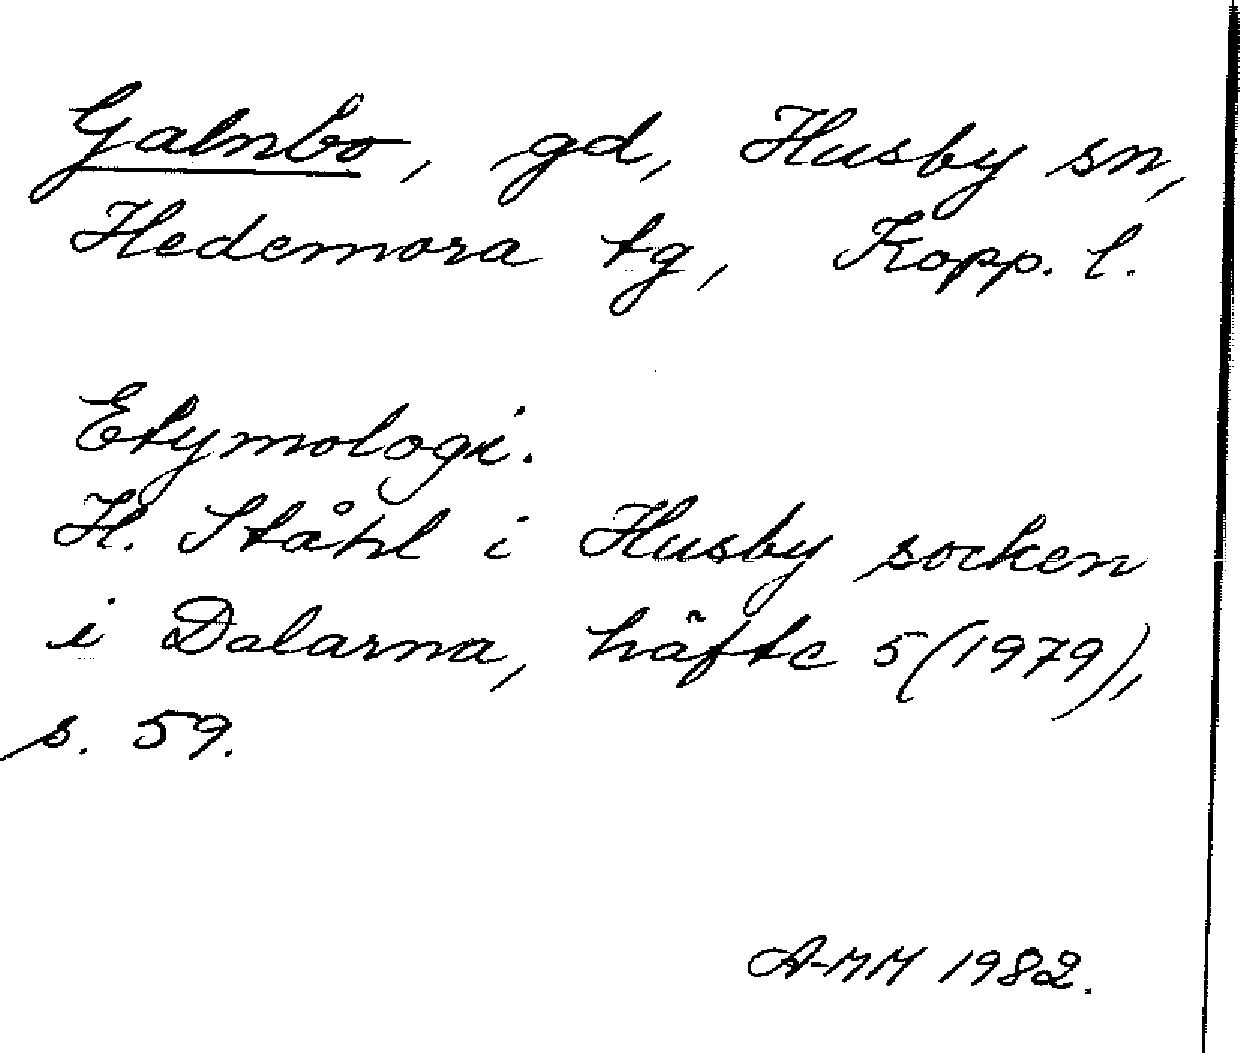 Galnbo, gd, Husby sn,
Hedemora tg, Kopp. l.
Etymologi.
H. Ståhl i Husby socken
i Dalarna, häfte 5 (1979),
s. 59.
A-MM 1982.